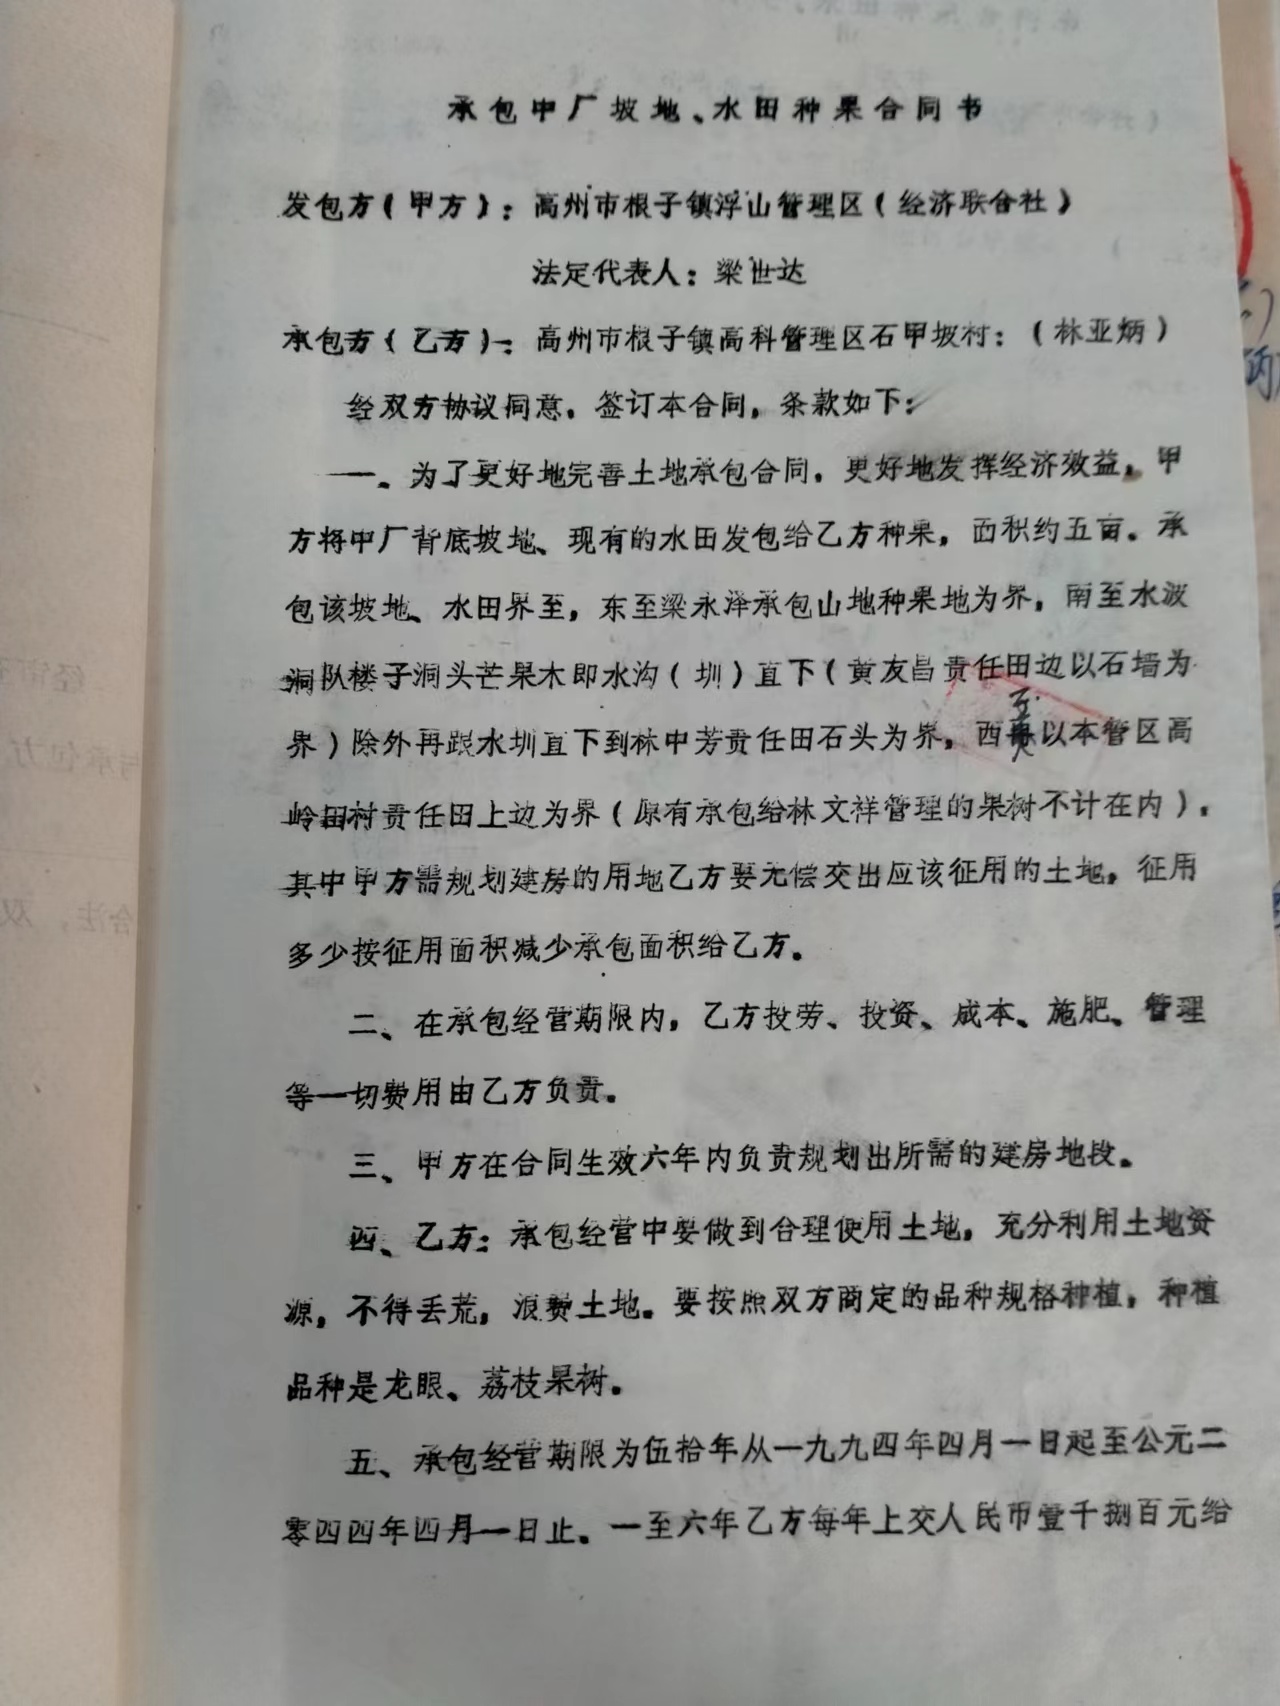 承包中厂坡地、水田种果合同书
发包方(甲方):高州市根子镇浮山管理区(经济联合社)
法定代表人:梁世达
承包方(乙方):高州市根子镇高科管理区石甲坡村:(林亚炳)
经双方协议同意,签订本合同,条款如下:
一、为了更好地完善土地承包合同,更好地发挥经济效益,甲
方将中厂背底坡地、现有的水田发包给乙方种果,面积约五亩。承
包该坡地、水田界至,东至梁永泽承包山地种果地为界,南至水波
洞队楼子洞头芒果木即水沟(圳)直下(黄友昌责任田边以石墙为
界)除外再跟水圳直下到林中芳责任田石头为界,西至以本管区高
岭田村责任田上边为界(原有承包给林文祥管理的果树不计在内)。
其中甲方需规划建房的用地乙方要无偿交出应该征用的土地,征用
多少按征用面积减少承包面积给乙方。
二、在承包经营期限内,乙方投劳、投资、成本、施肥、管理
等一切费用由乙方负责。
三、甲方在合同生效六年内负责规划出所需的建房地段。
四、乙方:承包经营中要做到合理使用土地,充分利用土地资
源,不得丢荒,浪费土地。要按照双方商定的品种规格种植,种植
品种是龙眼、荔枝果树。
五、承包经营期限为伍拾年从一九九四年四月一日起至公元二
零四四年四月一日止。一至六年乙方每年上交人民币壹千捌百元给